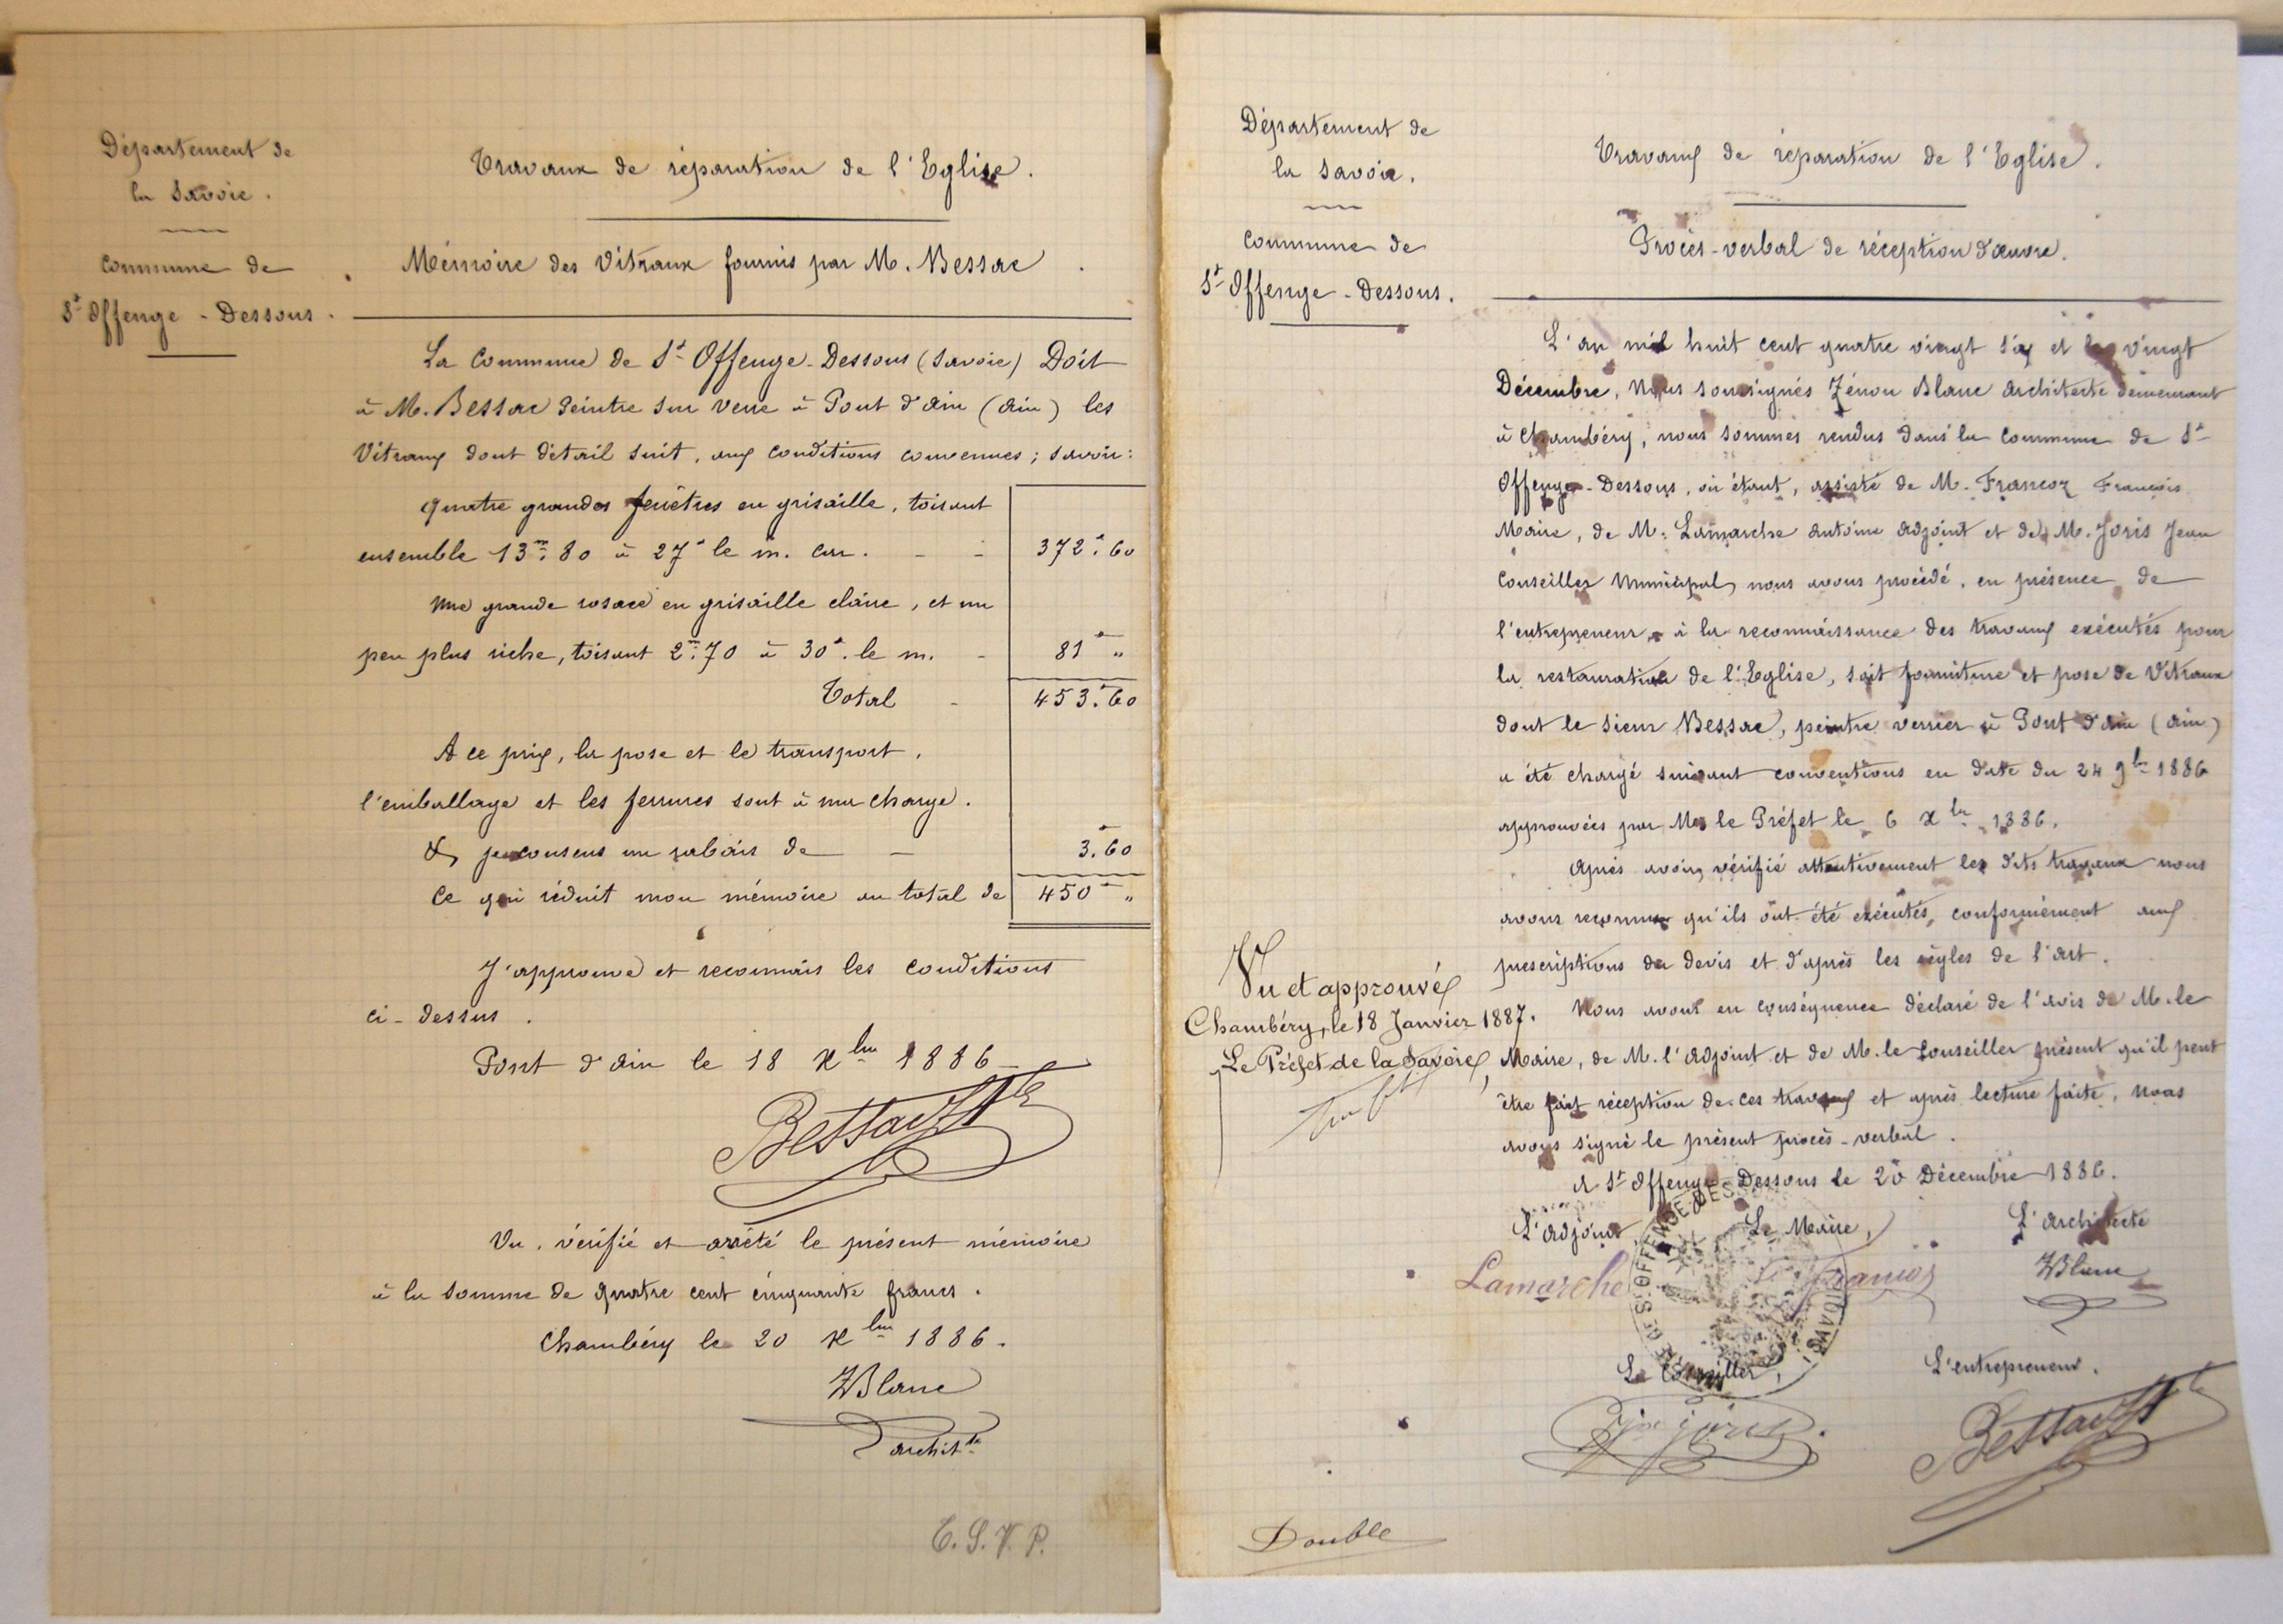 Département de
la Savoie.
Commune de
St Offenge - Dessous.
Travaux de réparation de l'Eglise.
Mémoire des Vitraux fournis par M. Bessac.
La Commune de St Offenge-Dessous (Savoie) Doit
à M. Bessac Peintre sur verre à Pont d'Ain (Ain) les
Vitraux dont détail suit, aux conditions convenues; savoir:
Quatre grandes fenêtres en grisaille, toisant
ensemble 13m.80 à 27f le m. car. - - 372f.60
Une grande rosace en grisaille claire, et un
peu plus riche, toisant 2m.70 à 30f. le m. - 81f "
Total - 453f.60
A ce prix, la pose et le transport,
l'emballage et les ferrures sont à ma charge.
& je consens un rabais de - 3f.60
Ce qui réduit mon mémoire au total de 450f "
J'approuve et reconnais les conditions
ci-dessus.
Pont d'Ain le 18 Xbre 1886
Bessac
Vu, vérifié et arrêté le présent mémoire
à la somme de quatre cent cinquante francs.
Chambéry le 20 Xbre 1886.
ZBlanc
archite
T.S.V.P.
Département de
la Savoie.
Commune de
St Offenge - Dessous.
Travaux de réparation de l'Eglise.
Procès-verbal de réception d'œuvre.
L'an mil huit cent quatre vingt six et le vingt
Décembre, Nous soussignés Zénon Blanc architecte demeurant
à Chambéry, nous sommes rendus dans la Commune de St
Offenge-Dessous, où étant, assisté de M. Francoz François
Maire, de M. Lamarche Antoine adjoint et de M. Joris Jean
Conseiller Municipal, nous avons procédé, en présence de
l'entrepreneur, à la reconnaissance des travaux exécutés pour
la restauration de l'Eglise, soit fourniture et pose de Vitraux
dont le sieur Bessac, peintre verrier à Pont d'Ain (Ain)
a été chargé suivant conventions en date du 24 9bre 1886
approuvées par Mr le Préfet le 6 Xbre 1886.
Après avoir vérifié attentivement les dits travaux nous
avons reconnu qu'ils ont été exécutés, conformément aux
prescriptions du devis et d'après les règles de l'art.
Nous avons en conséquence déclaré de l'avis de M. le
Maire, de M. l'adjoint et de M. le Conseiller présent qu'il peut
être fait réception de ces travaux et après lecture faite, nous
avons signé le présent procès-verbal.
A St Offenge-Dessous le 20 Décembre 1886.
Vu et approuvé
Chambéry, le 18 Janvier 1887.
Le Préfet de la Savoie,
L'adjoint, Le Maire, L'Architecte
Lamarche Francoz ZBlanc
Le Conseiller, L'entrepreneur.
joris Bessac
Double